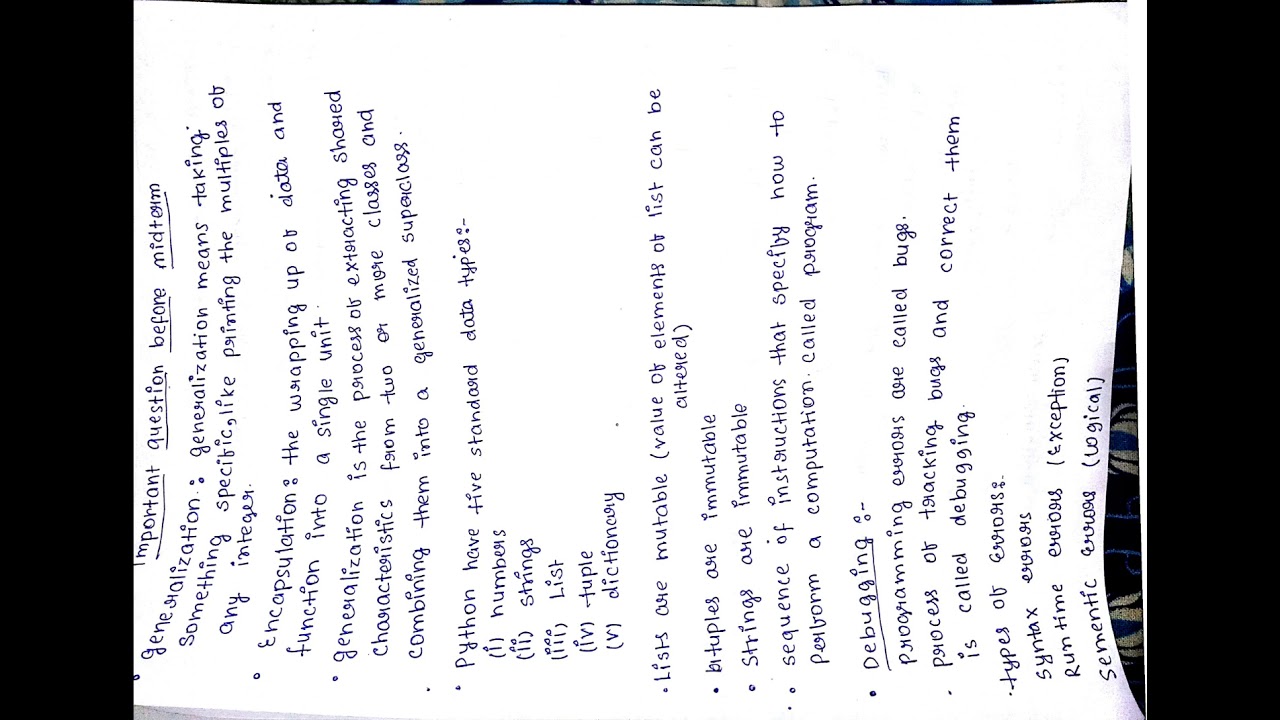 Important question before midterm
• generalization:: generalization means taking
something specific, like printing the multiples of
any integer.
• Encapsulation: the wrapping up of data and
function into a single unit.
• generalization is the process of extracting shared
characteristics from two or more classes and
combining them into a generalized superclass.
• Python have five standard data types:-
(i) numbers
(ii) strings
(iii) List
(iv) tuple
(v) dictionary
• Lists are mutable (value of elements of list can be
altered)
• bituples are immutable
• Strings are immutable
• sequence of instructions that specify how to
Perform a computation. called program.
• Debugging :-
programming errors are called bugs.
• process of tracking bugs and correct them
is called debugging.
• types of errors:-
Syntax errors
Runtime errors (Exception)
Sementic errors (Logical)